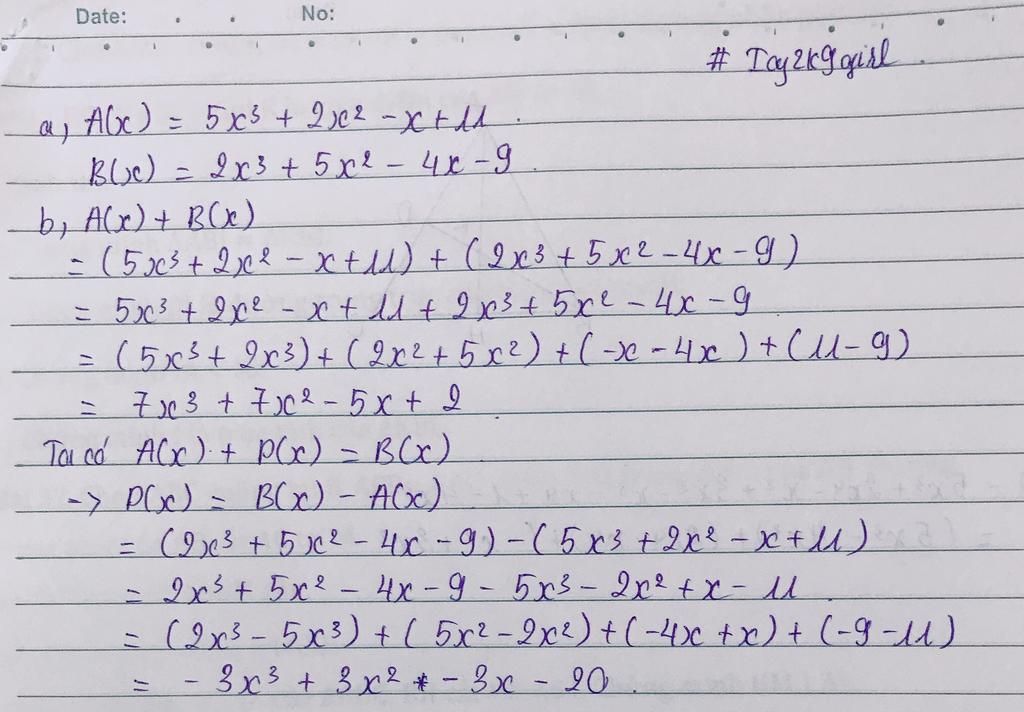 Date: No:
# Icy2k9girl
a, A(x) = 5x³ + 2x² - x + 11.
B(x) = 2x³ + 5x² - 4x - 9.
b, A(x) + B(x)
= (5x³ + 2x² - x + 11) + (2x³ + 5x² - 4x - 9)
= 5x³ + 2x² - x + 11 + 2x³ + 5x² - 4x - 9
= (5x³ + 2x³) + (2x² + 5x²) + (-x - 4x) + (11 - 9)
= 7x³ + 7x² - 5x + 2.
Ta có A(x) + P(x) = B(x)
-> P(x) = B(x) - A(x)
= (2x³ + 5x² - 4x - 9) - (5x³ + 2x² - x + 11)
= 2x³ + 5x² - 4x - 9 - 5x³ - 2x² + x - 11.
= (2x³ - 5x³) + (5x² - 2x²) + (-4x + x) + (-9 - 11)
= - 3x³ + 3x² - 3x - 20.